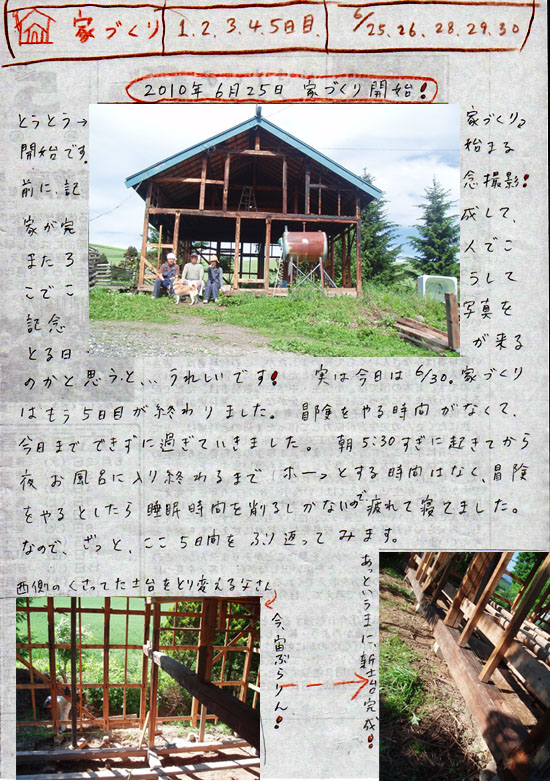 家づくり 1.2.3.4.5日目. 6/25.26.28.29.30
2010年6月25日 家づくり開始!
とうとう→ 家づくり
開始です。 始まる
前に、記 念撮影!
家が完 成して、
また3 人でこ
こでこ うして
記念 写真を
とる日 が来る
のかと思うと、、、うれしいです! 実は今日は6/30。家づくり
はもう5日目が終わりました。 冒険をやる時間がなくて、
今日までできずに過ぎていきました。 朝5:30すぎに起きてから
夜お風呂に入り終わるまで ホーっとする時間はなく、冒険
をやるとしたら睡眠時間を削るしかないので疲れて寝てました。
なので、ざっと、ここ5日間をふり返ってみます。
西側のくさってた土台をとり変える父さん
今、宙ぶらりん!
あっというまに、新土台完成!